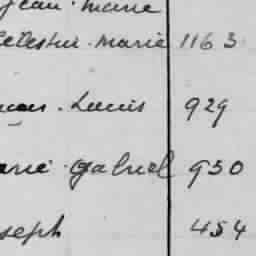 Jean. Marie
Celestin. Marie 1163
Louis 929
Marie. Gabriel 950
Joseph 454